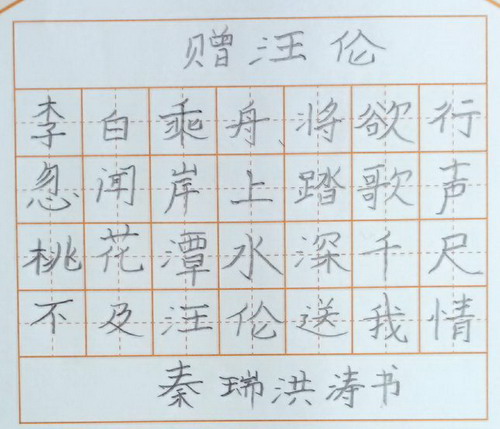 赠汪伦
李白乘舟将欲行
忽闻岸上踏歌声
桃花潭水深千尺
不及汪伦送我情
秦瑞洪涛书